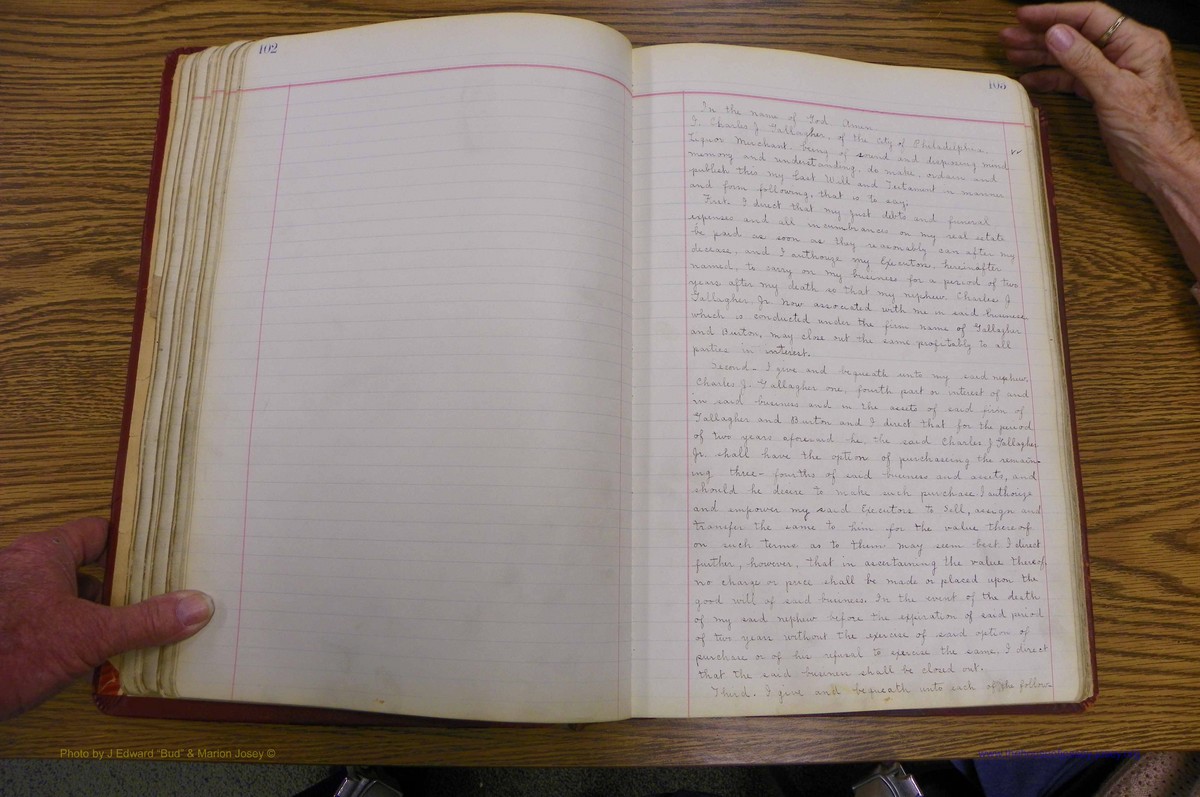 102
103
In the name of God Amen
I, Charles J. Gallagher, of the City of Philadelphia,
Liquor Merchant, being of sound and disposing mind
memory and understanding, do make, ordain and
publish this my Last Will and Testament in manner
and form following, that is to say:
First. I direct that my just debts and funeral
expenses and all incumbrances on my real estate
be paid as soon as they reasonably can after my
decease, and I authorize my Executors, hereinafter
named, to carry on my business for a period of two
years after my death so that my nephew Charles J
Gallagher Jr. now associated with me in said business
which is conducted under the firm name of Gallagher
and Burton, may close out the same profitably to all
parties in interest.
Second - I give and bequeath unto my said nephew
Charles J. Gallagher one, fourth part or interest of and
in said business and in the assets of said firm of
Gallagher and Burton and I direct that for the period
of two years aforesaid he, the said Charles J Gallagher
Jr. shall have the option of purchasing the remain-
ing three-fourths of said business and assets, and
should he desire to make such purchase I authorize
and empower my said Executors to sell, assign and
transfer the same to him for the value thereof
on such terms as to them may seem best. I direct
further, however, that in ascertaining the value thereof,
no charge or price shall be made or placed upon the
good will of said business. In the event of the death
of my said nephew before the expiration of said period
of two years without the exercise of said option of
purchase or of his refusal to exercise the same, I direct
that the said business shall be closed out.
Third. I give and bequeath unto each of the follow-
Photo by J Edward "Bud" & Marion Josey ©